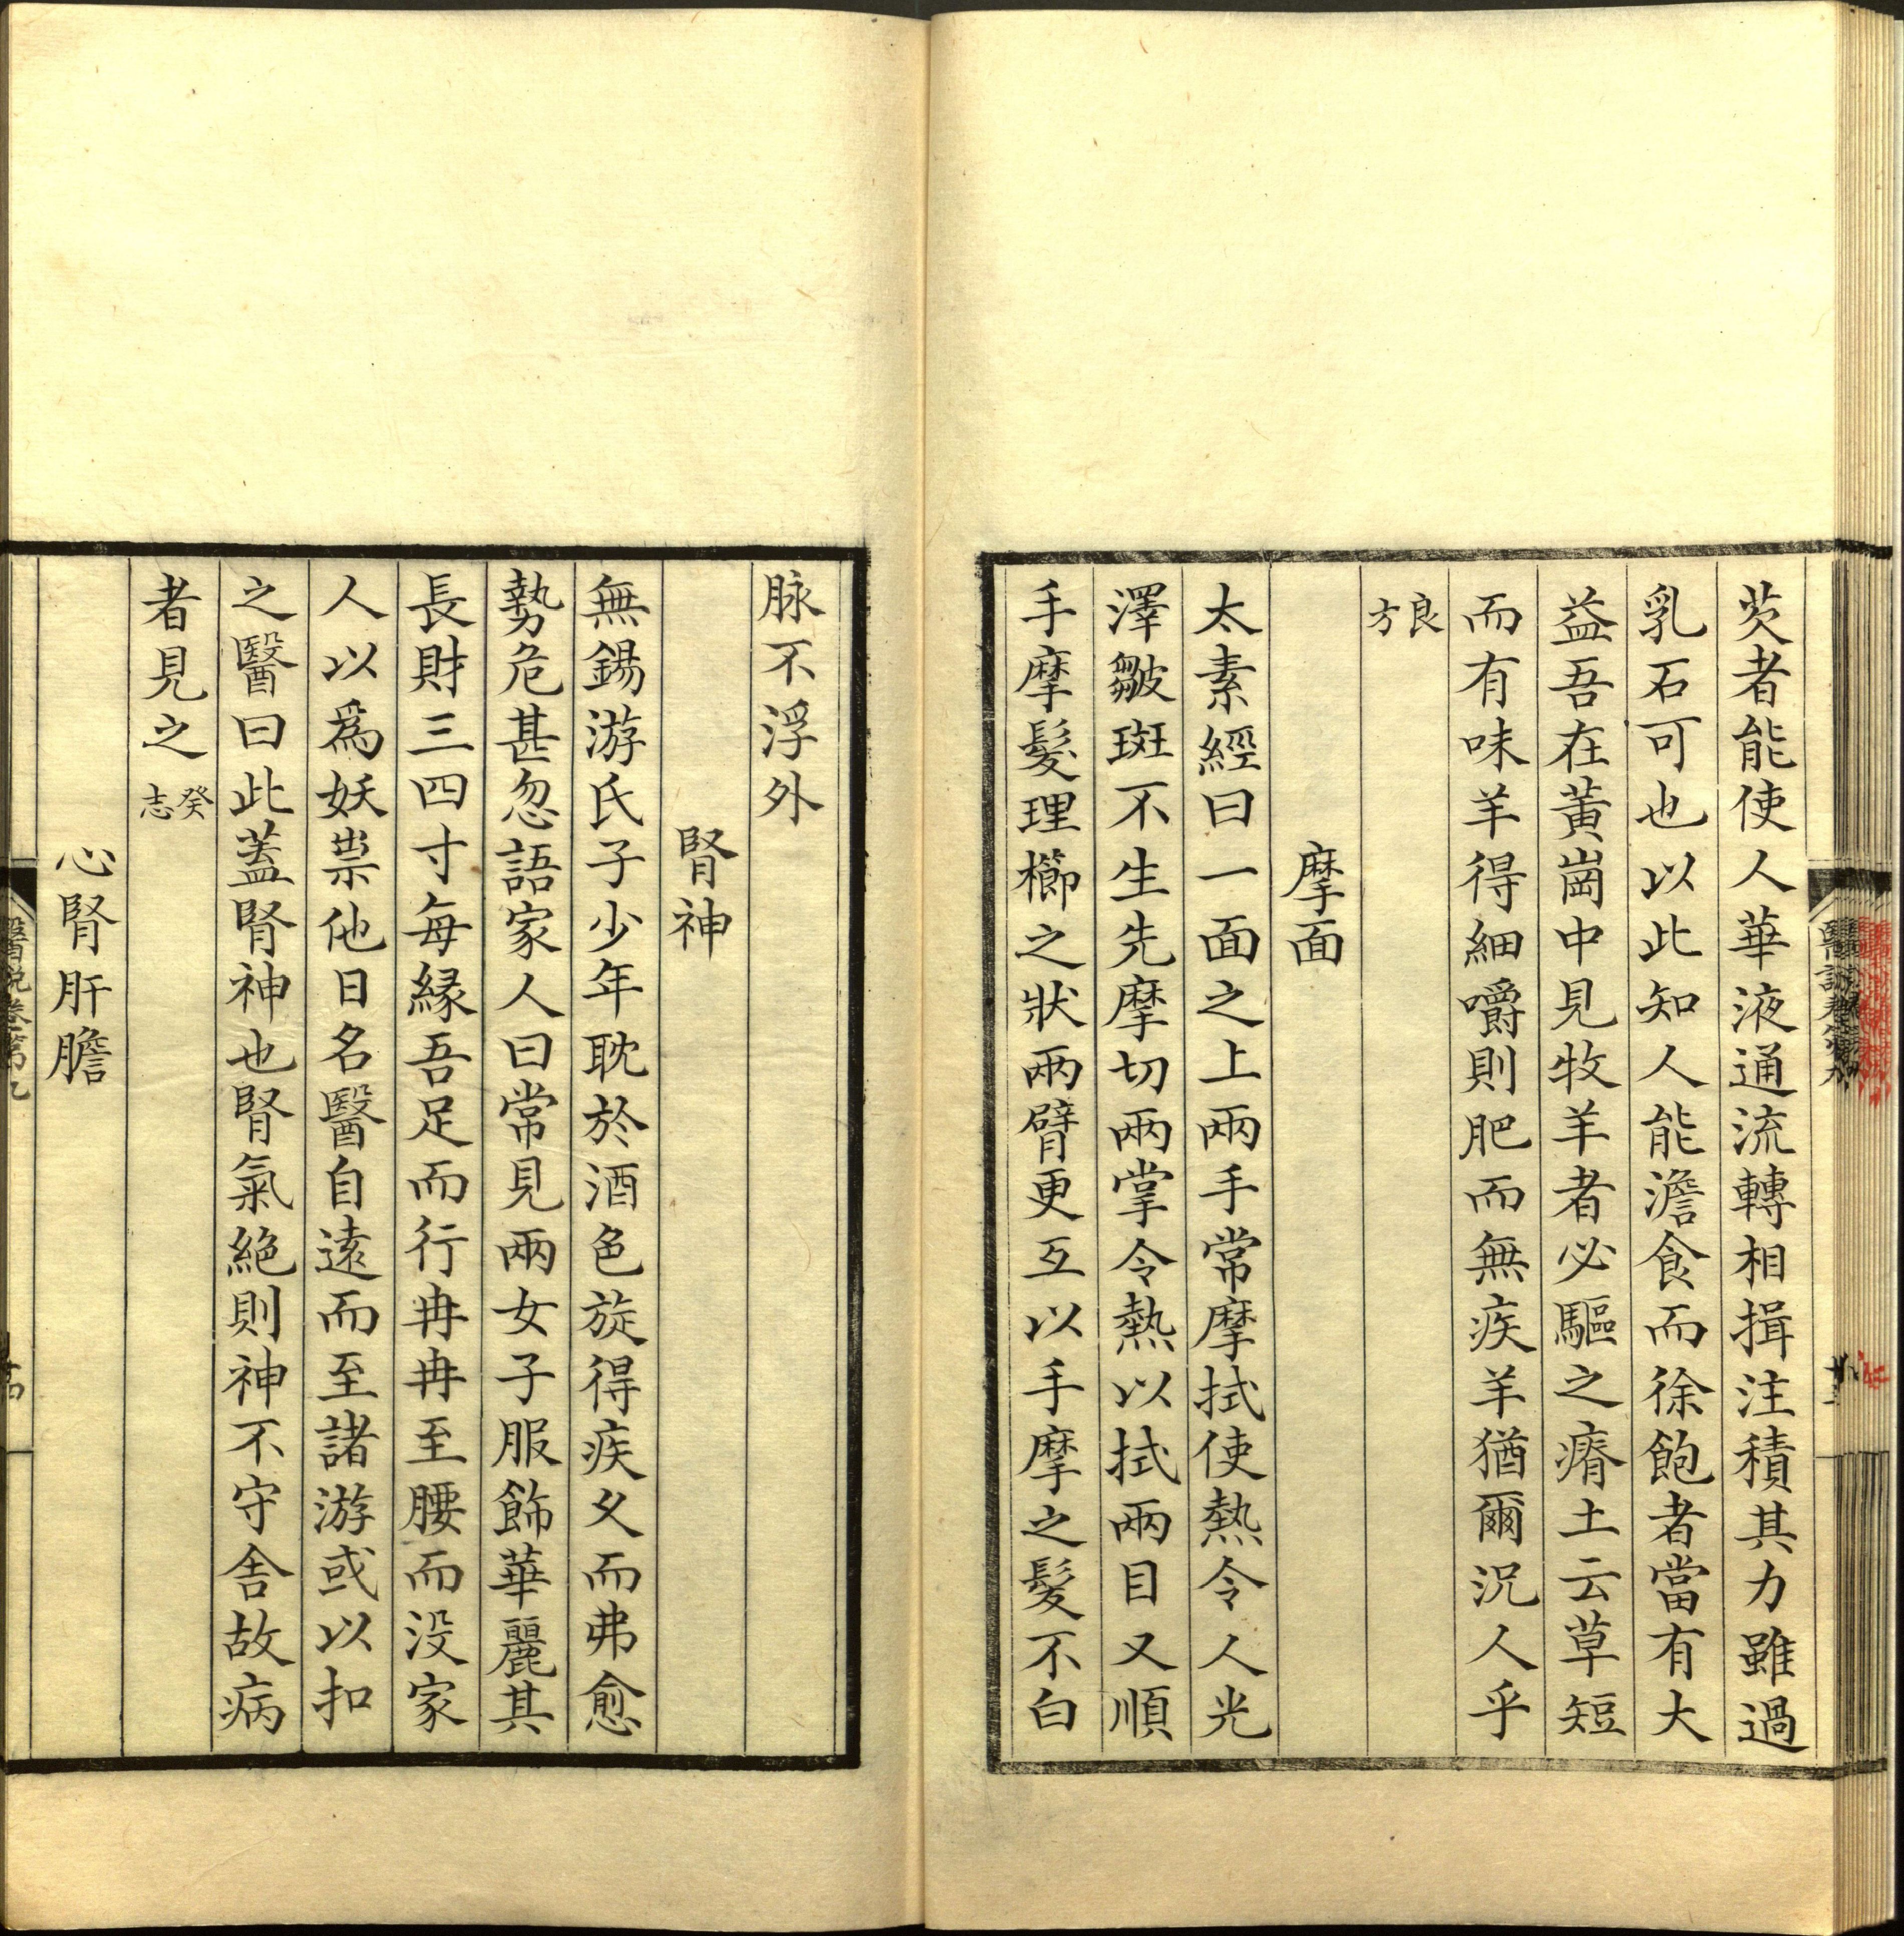 芡者能使人華液通流轉相揖注積其力雖過
乳石可也以此知人能澹食而徐飽者當有大
益吾在黃崗中見牧羊者必驅之瘠土云草短
而有味羊得細嚼則肥而無疾羊猶爾況人乎
良方
摩面
太素經曰一面之上兩手常摩拭使熱令人光
澤皺斑不生先摩切兩掌令熱以拭兩目又順
手摩髮理櫛之狀兩臂更互以手摩之髮不白
脉不浮外
腎神
無錫游氏子少年耽於酒色旋得疾久而弗愈
勢危甚忽語家人曰常見兩女子服飾華麗其
長財三四寸每緣吾足而行冉冉至腰而没家
人以爲妖祟他日名醫自遠而至諸游或以扣
之醫曰此蓋腎神也腎氣絕則神不守舍故病
者見之癸志
心腎肝膽
醫說卷第九